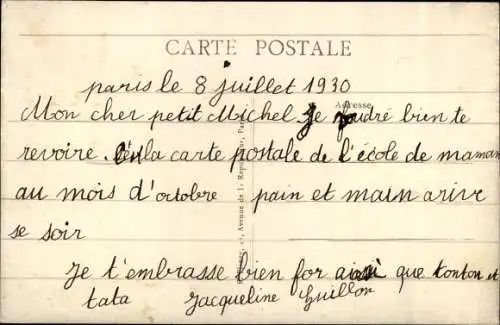 CARTE POSTALE
paris le 8 juillet 1930
Adresse
Mon cher petit Michel Je voudré bien te
revoire. la carte postale de l'école de maman
au mois d'octobre pain et main arive
se soir
Je t'embrasse bien for ainsi que tonton et
tata Jacqueline Guillon
Avenue de la République, Paris